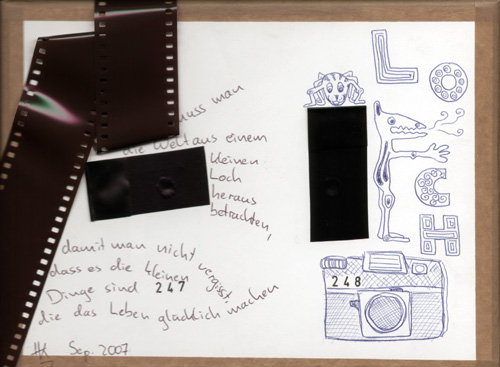 muss man
die Welt aus einem
kleinen
Loch
heraus
betrachten,
damit man nicht
dass es die kleinen vergisst,
Dinge sind 247
die das Leben glücklich machen
Sep. 2007
LO
CH
248